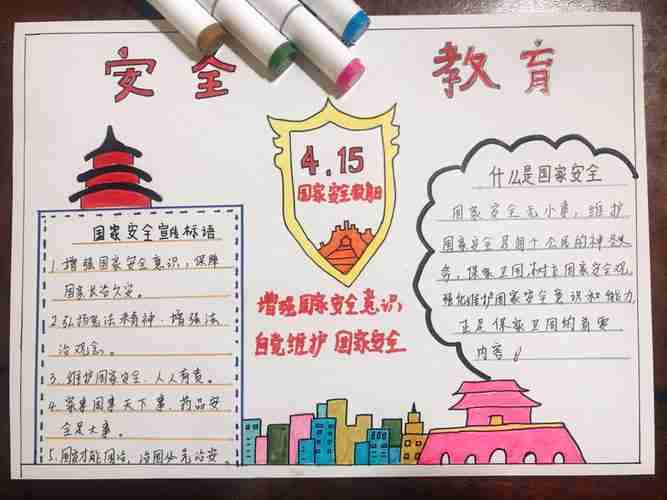 安全 教育
4.15
国家安全教育日
增强国家安全意识
自觉维护 国家安全
国家安全宣传标语
1. 增强国家安全意识，保障
国家长治久安。
2. 弘扬宪法精神，增强法
治观念。
3. 维护国家安全、人人有责。
4. 家事国事天下事、药品安
全是大事。
5. 国才能国治，治国必先治安
什么是国家安全
国家安全无小事，维护
国家安全是每个公民的神圣义
务，保家卫国，树立国家安全观
强化维护国家安全意识和能力
正是保家卫国的首要
内容。